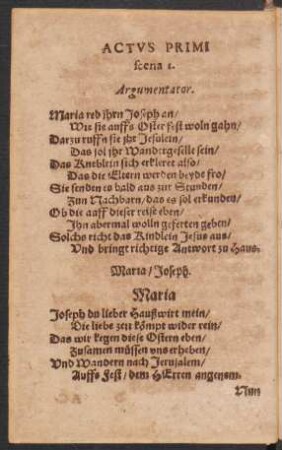 ACTVS PRIMI
scena 1.
Argumentator.
Maria red jhrn Joseph an/
Wie sie auffs Oster fest woln gahn/
Darzu ruffn sie jhr Jesulein/
Das sol jhr Wandergeselle sein/
Das Kneblein sich erkleret also/
Das die Eltern werden beyde fro/
Sie senden es bald aus zur Stunden/
Zun Nachbarn/ das es sol erkunden/
Ob die auff dieser reise eben/
Jhn abermal wolln geferten geben/
Solchs richt das Kindlein Jesus aus/
Vnd bringt richtige Antwort zu Haus.
Maria/ Joseph.
Maria
Joseph du lieber Haußwirt mein/
Die liebe zeit kömpt wider rein/
Das wir kegen diese Ostern eben/
Zusamen müssen vns erheben/
Vnd Wandern nach Jerusalem/
Auffs Fest/ dem HErren angenem.
Nun